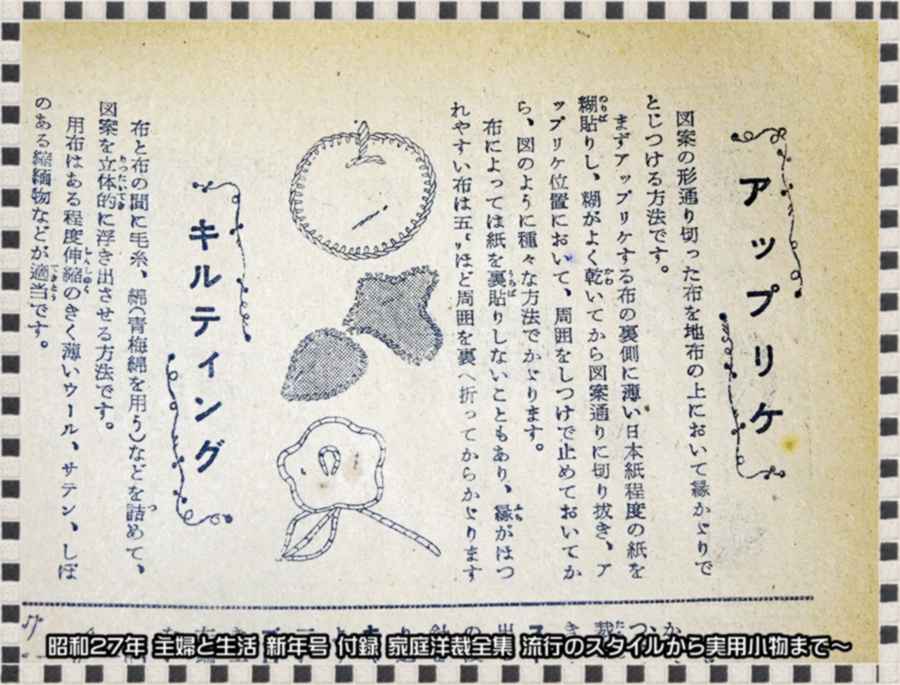 アップリケ
図案の形通り切った布を地布の上において縁かがりで
とじつける方法です。
まずアップリケする布の裏側に薄い日本紙程度の紙を
糊貼りし、糊がよく乾いてから図案通りに切り抜き、ア
ップリケ位置において、周囲をしつけで止めておいてか
ら、図のように種々な方法でかがります。
布によっては紙を裏貼りしないこともあり、縁がほつ
れやすい布は五㍉ほど周囲を裏へ折ってからかがります
キルティング
布と布の間に毛糸、綿(青梅綿を用う)などを詰めて、
図案を立体的に浮き出させる方法です。
用布はある程度伸縮のきく薄いウール、サテン、しぼ
のある縮緬物などが適当です。
昭和27年 主婦と生活 新年号 付録 家庭洋裁全集 流行のスタイルから実用小物まで～